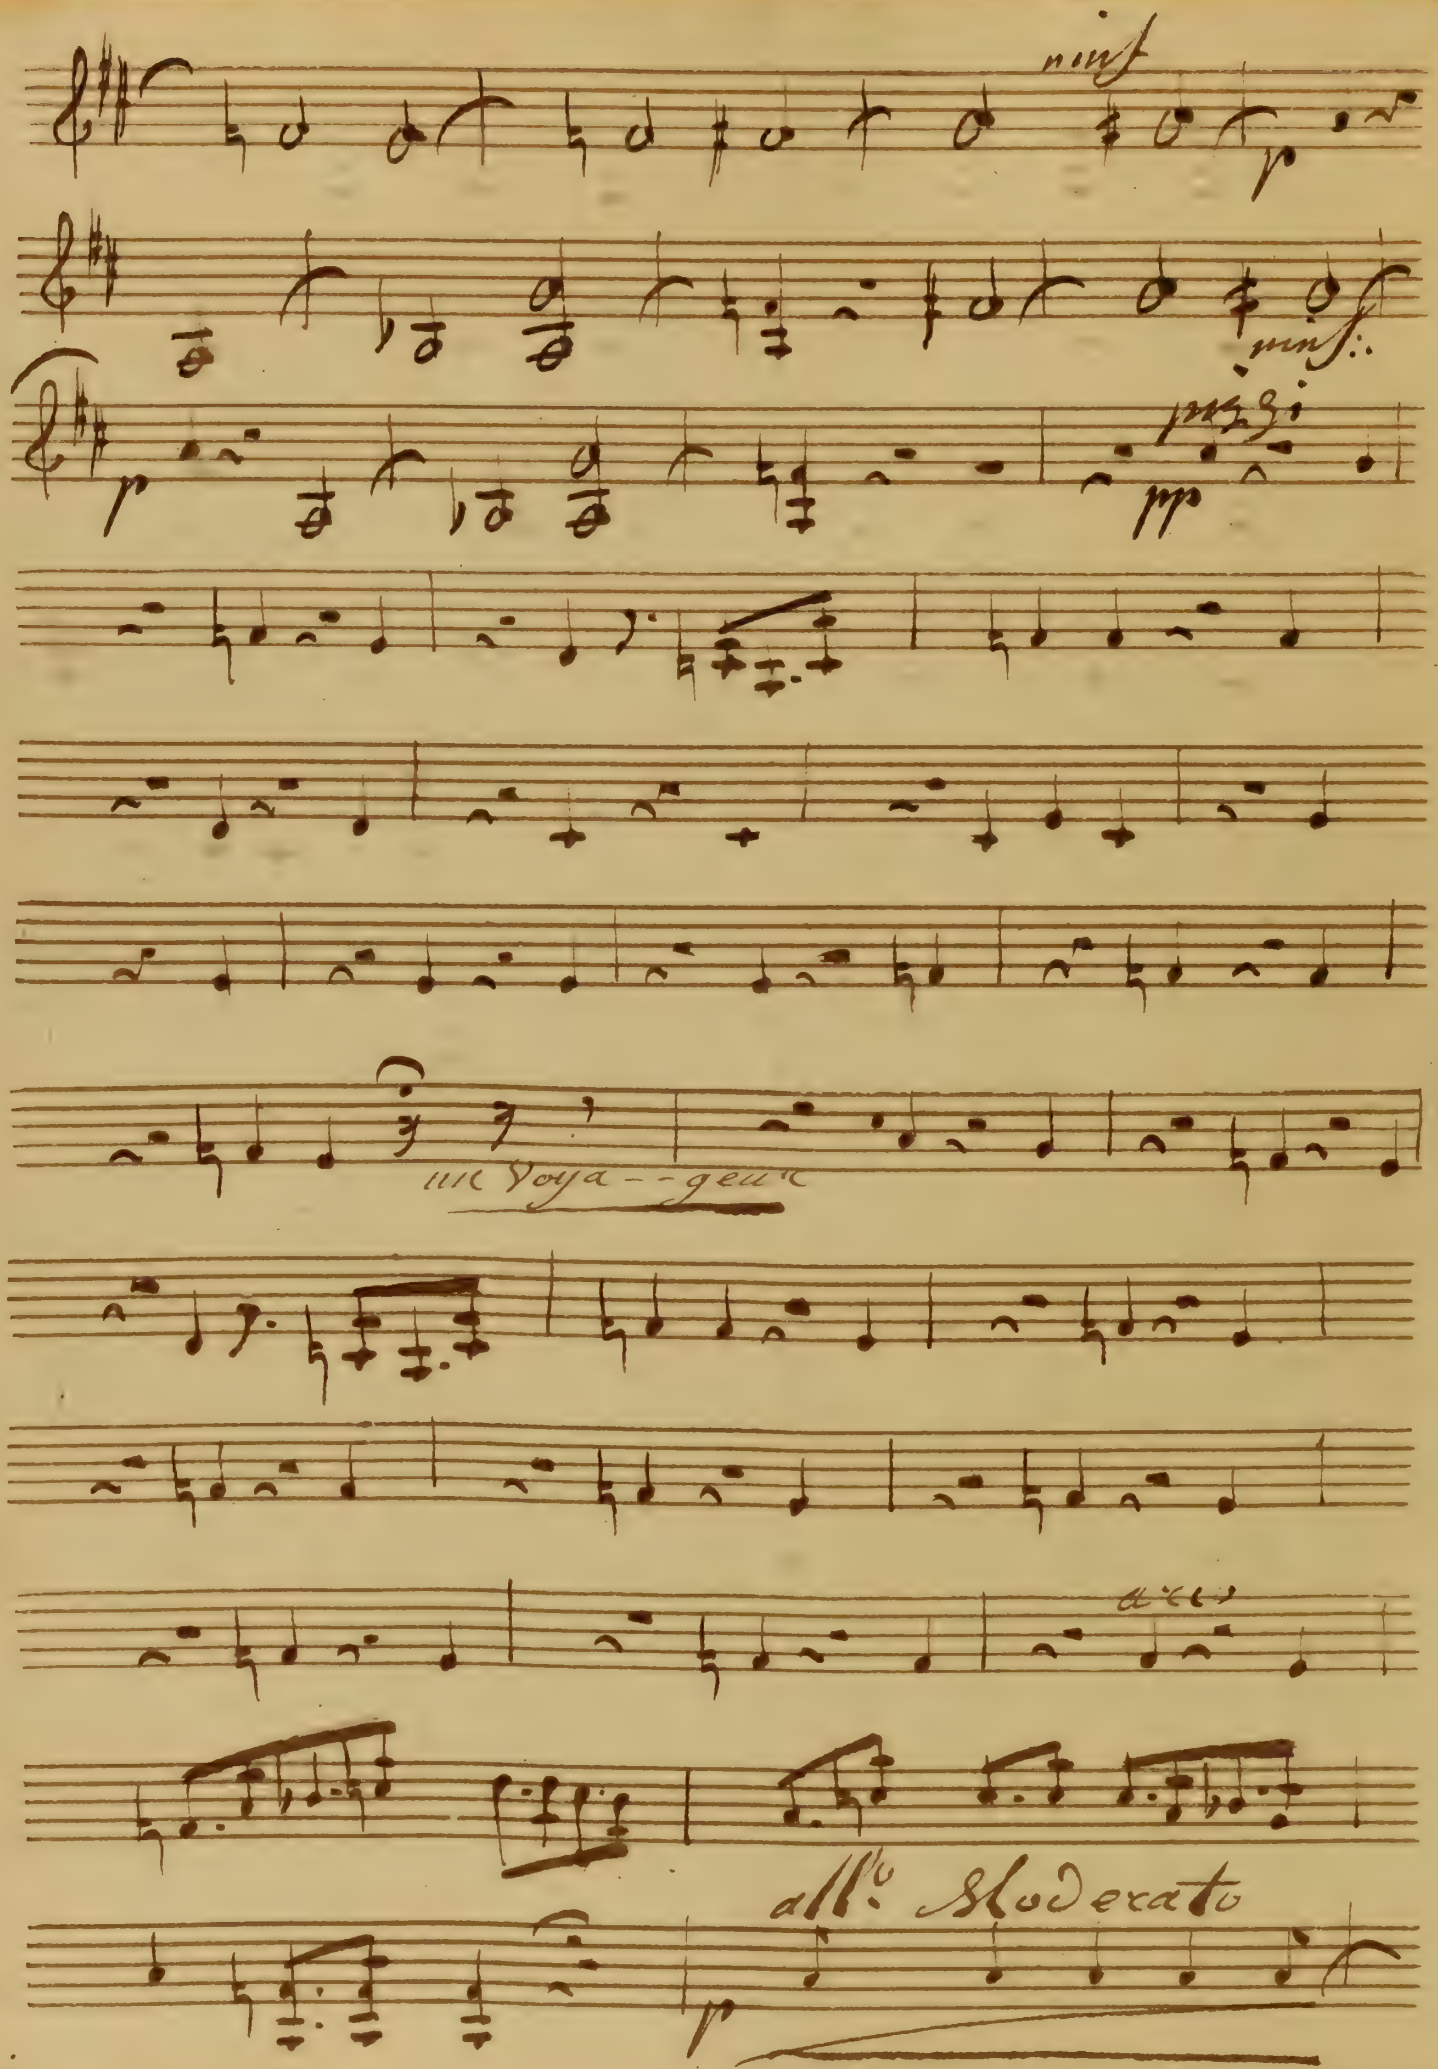 rinf
p
rinf:.
pizzi
p
pp
un Voya--geur
arco
all.o Moderato
p